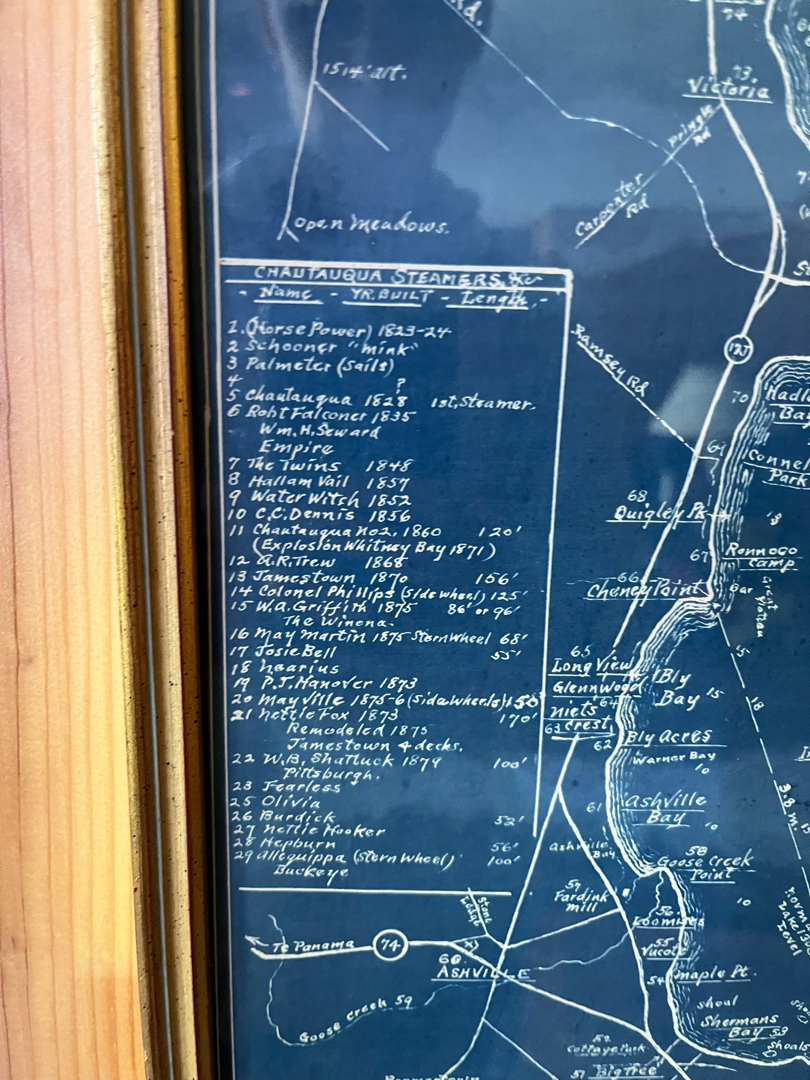 Rd.
74
1514' alt.
73.
Victoria
Pringle
Rd
Carpenter
Rd
Open Meadows.
CHAUTAUQUA STEAMERS, &c
- Name - YR. BUILT - Length -
1. (Horse Power) 1823-24
2 Schooner "Mink"
3 Palmeter (Sails)
4 ?
5 Chautauqua 1828 1st, Steamer.
6 Robt Falconer 1835
Wm. H. Seward
Empire
7 The Twins 1848
8 Hallam Vail 1857
9 Water Witch 1852
10 C.C. Dennis 1856
11 Chautauqua No 2, 1860 120'
(Explosion Whitney Bay 1871)
12 A.R. Trew 1868
13 Jamestown 1870 156'
14 Colonel Phillips (Side wheel) 125'
15 W.A. Griffith 1875 86' or 96'
The Winona.
16 May Martin 1875 Stern Wheel 68'
17 Josie Bell 55'
18 Nearius
19 P.J. Hanover 1873
20 Mayville 1875-6 (Side Wheels) 150'
21 Nettie Fox 1873 170'
Remodeled 1875
Jamestown 4 decks.
22 W.B. Shattuck 1879 100'
Pittsburgh.
23 Fearless
25 Olivia
26 Burdick 52'
27 Nettie Hooker
28 Hepburn 56'
29 Allequippa (Stern Wheel) 100'
Buckeye
Ramsey Rd
70
69
68
Quigley Pk
67
Ronnoco
Camp
66
Cheney Point
Bar
65
Long View
Glennwood
64
Niets
Crest
63
62
Bly
Bay
15
15
18
Bly Acres
Warner Bay
10
61
Ashville
Bay
10
Ashville
Bay
58
Goose Creek
Point
57
Fardink
Mill
10
56
Loomises
55
Vucote
54
Maple Pt.
Shoal
Shermans
Bay 53
Shoals
Stone
To Panama
74
60.
ASHVILLE
Goose Creek 59
52
Cottage Park
51 Big Tree